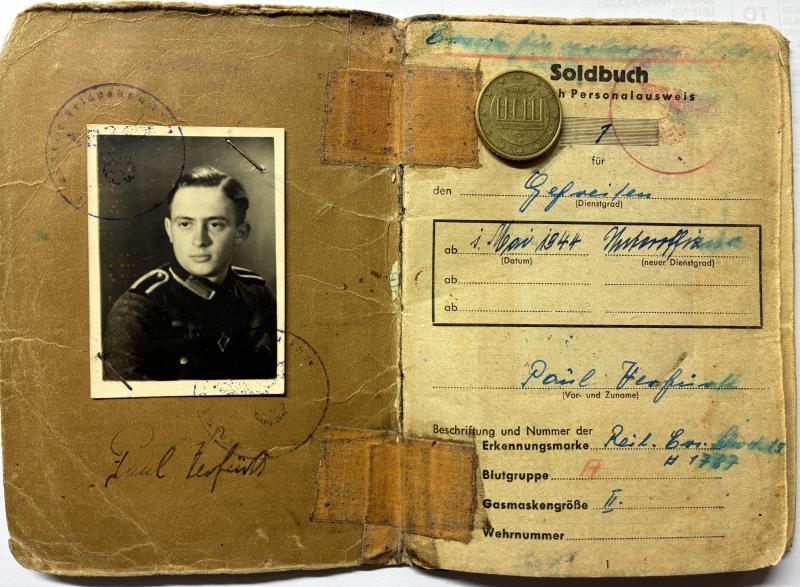 Paul
Ersatz für verlorenes
Soldbuch
h Personalausweis
1
für
den Gefreiten
(Dienstgrad)
ab 1. Mai 1944 Unteroffizier
(Datum) (neuer Dienstgrad)
ab
ab
Paul
(Vor- und Zuname)
Beschriftung und Nummer der
Erkennungsmarke Reit. Ers.
Blutgruppe A
Gasmaskengröße II.
Wehrnummer
1